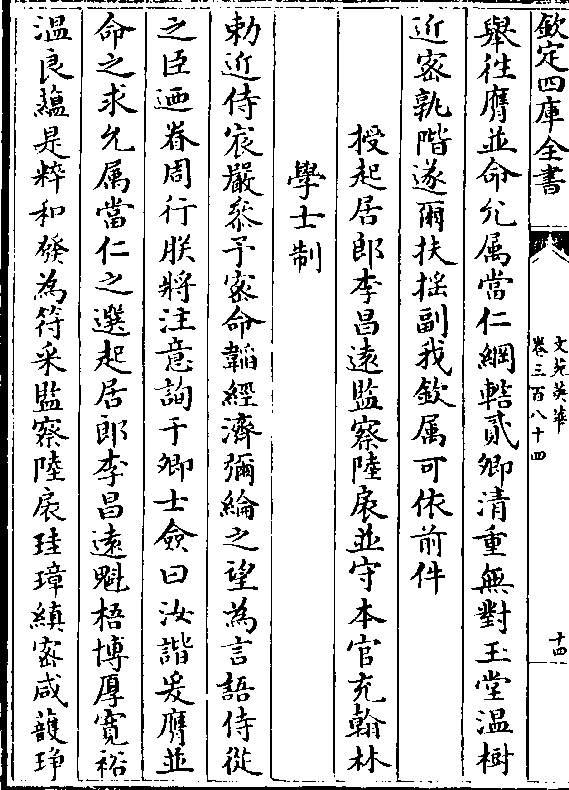 欽定四庫全書
文苑英華
卷三百八十四
十四
舉徃膺並命允属當仁網轄貳卿清重無對玉堂温樹
近宻孰階遂爾扶揺副我欽属可依前件
授起居郎李昌逺監察陸扆並守本官充翰林
學士制
勅近侍宸嚴叅予宻命韜經濟彌綸之望為言語侍從
之臣迺眷周行朕將注意詢于卿士僉曰汝諧爰膺並
命之求允属當仁之選起居郎李昌逺魁梧博厚寛裕
温良蘊是粹和發為符采監察陸扆珪璋縝宻咸䕶琤